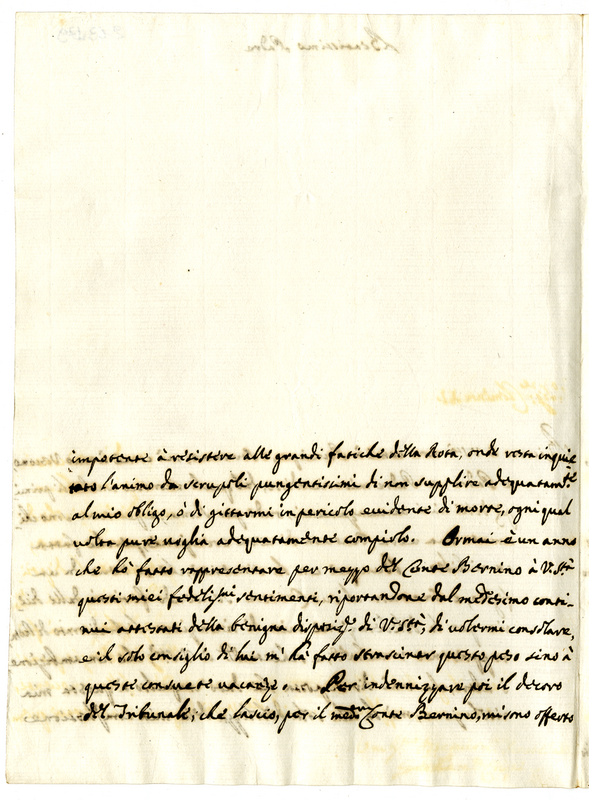 impotente à resistere alle grandi fatiche della Rota, onde resta inquie
tato l'animo da scrupoli pungentissimi di non supplire adequatam.te
al mio obligo, ò di gittarmi in pericolo evidente di morte, ogni qual
volta pure voglia adequatamente compiolo. Ormai è un anno
che hò fatto rappresentare per mezzo del Conte Bernino à V. S.tà
questi miei fedeliss.mi sentimenti, riportandone dal medesimo conti-
nui attestati della benigna disposiz.e di V. S.tà, di volermi consolare,
e il solo consiglio di lui m' hà fatto strascinar questo peso sino à
queste consuete vacanze. Per indennizzare poi il decoro
del Tribunale, che lascio, per il med.mo Conte Bernino, mi sono offerto